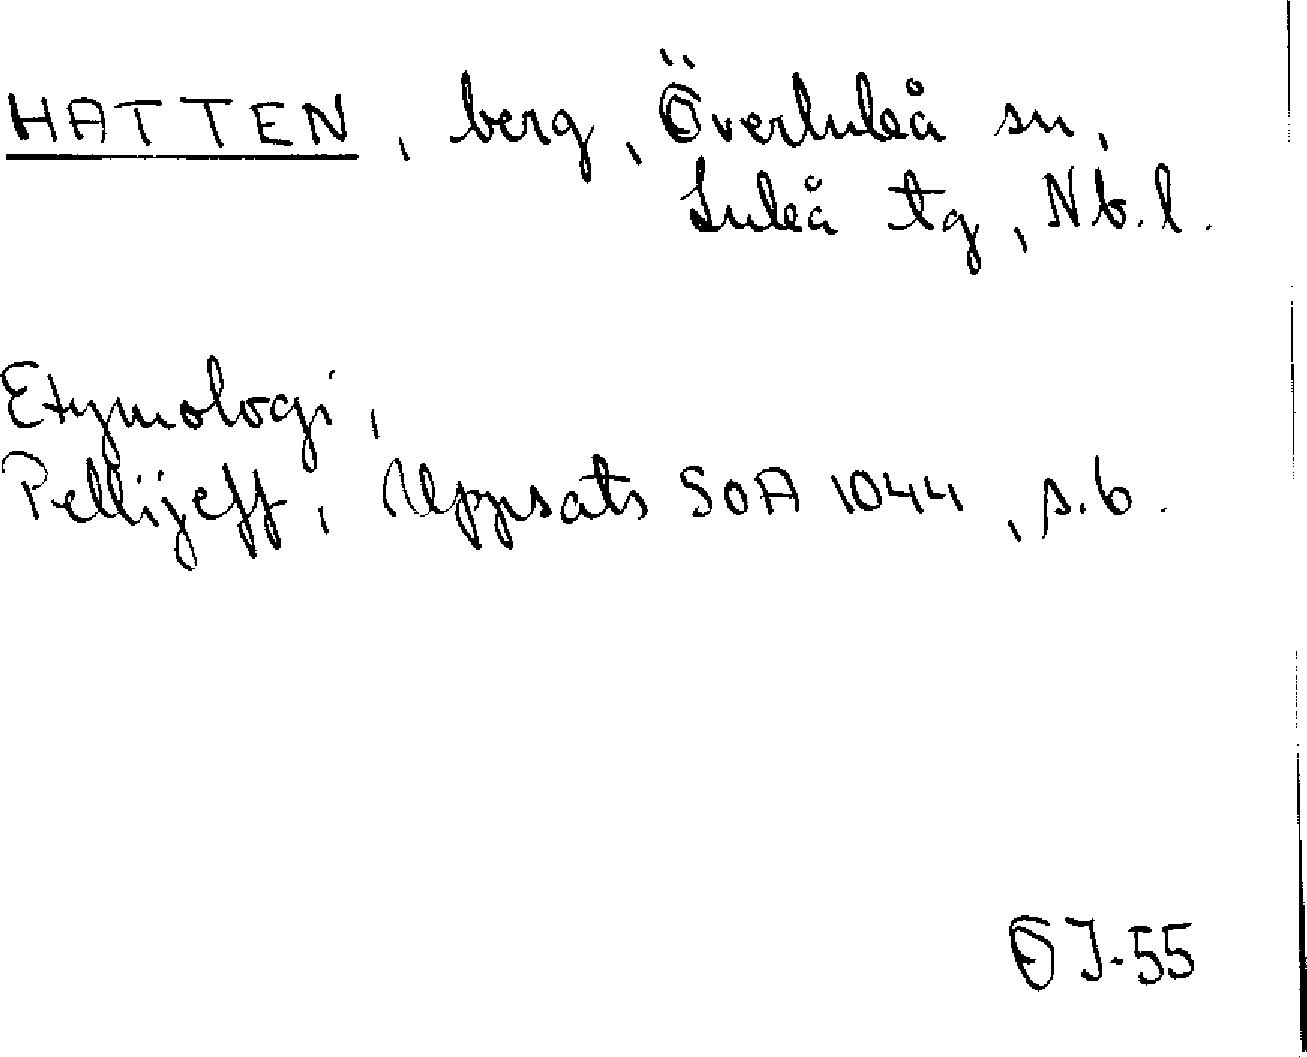 HATTEN, berg, Överluleå sn,
Luleå tg, Nb.l.
Etymologi,
Pellijeff, Uppsats SOA 1044, s.6.
OJ-55